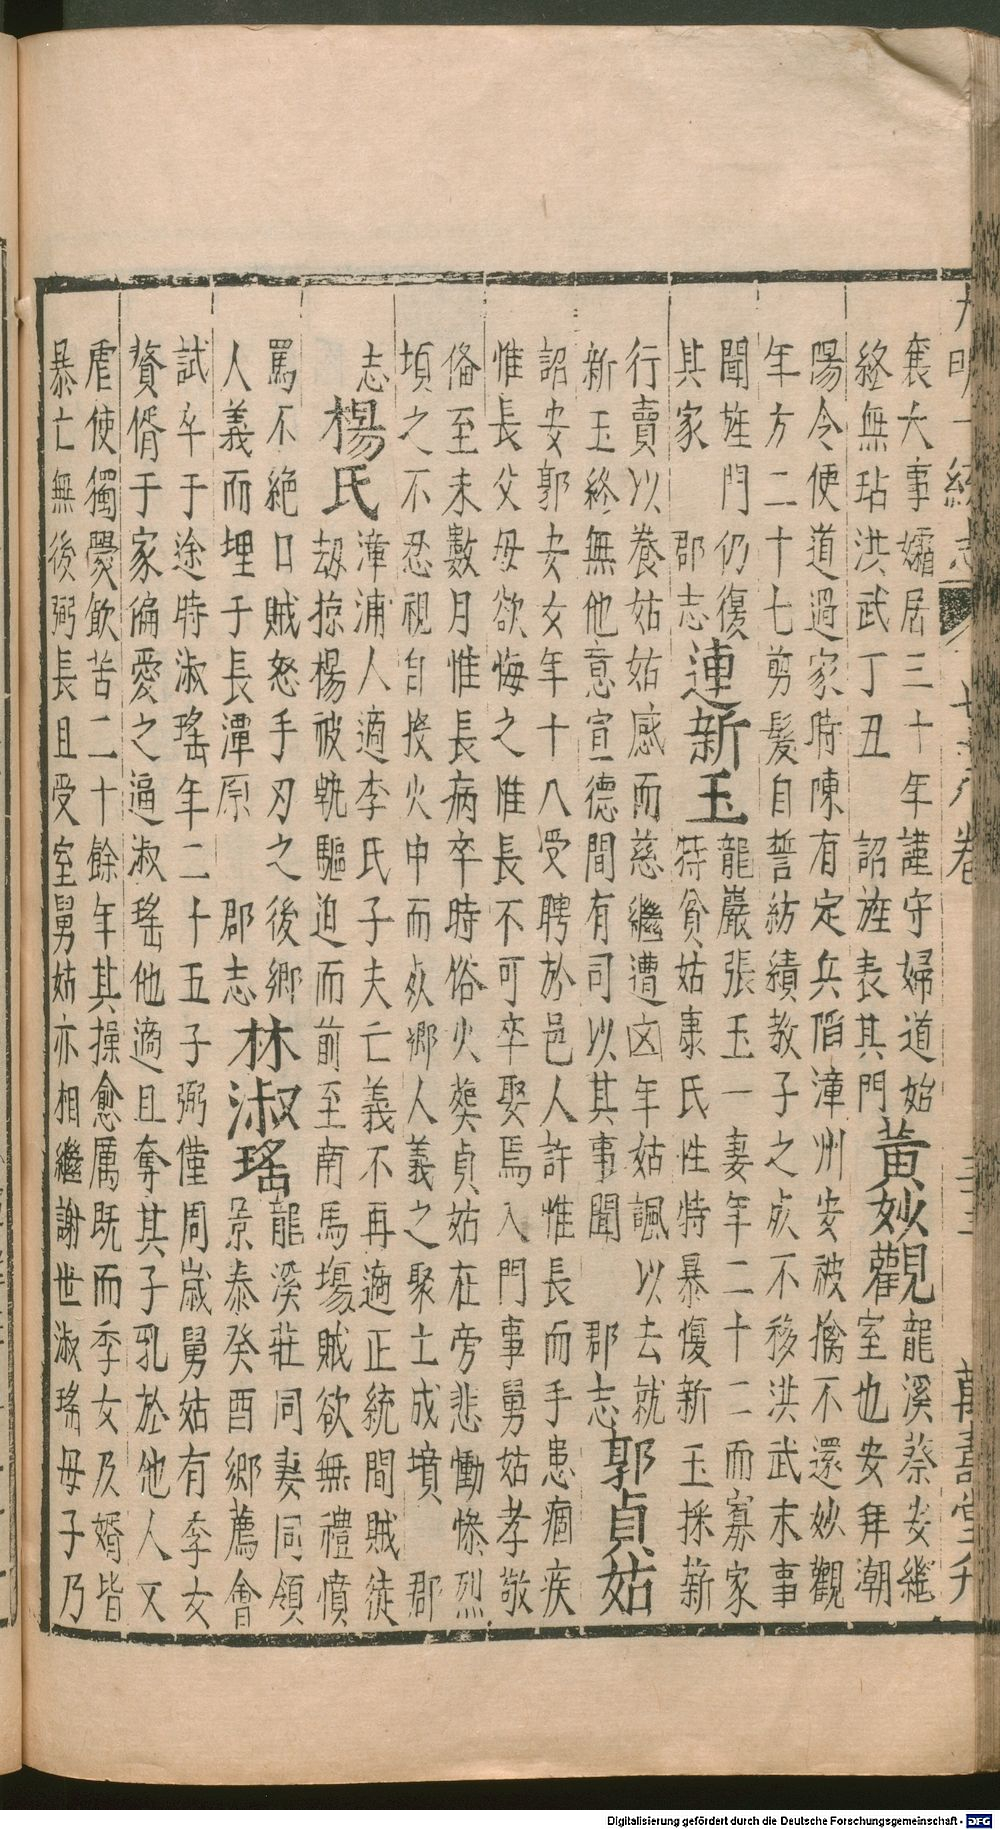 大明一統志 七十八卷 三十三 萬壽堂刋
襄大事孀居三十年謹守婦道始
終無玷洪武丁丑 詔旌表其門
黃妙觀
龍溪蔡安繼
室也安拜潮
陽令便道過家時陳有定兵陷漳州安被擒不還妙觀
年方二十七剪髮自誓紡績教子之死不移洪武末事
聞旌門仍復
其家 郡志
連新玉
龍巖張玉一妻年二十二而寡家
符貧姑康氏性特暴愎新玉採薪
行賣以養姑姑感而慈繼遭凶年姑諷以去就
新玉終無他意宣德間有司以其事聞 郡志
郭貞姑
詔安郭安女年十八受聘於邑人許惟長而手患痼疾
惟長父母欲悔之惟長不可卒娶焉入門事舅姑孝敬
俻至未數月惟長病卒時俗火葬貞姑在旁悲慟慘烈
頃之不忍視自投火中而死鄉人義之聚土成墳 郡
志
楊氏
漳浦人適李氏子夫亡義不再適正統間賊徒
劫掠楊被執驅迫而前至南馬塲賊欲無禮憤
罵不絕口賊怒手刃之後鄉
人義而埋于長潭原 郡志
林淑瑤
龍溪莊同妻同領
景泰癸酉鄉薦會
試卒于途時淑瑤年二十五子弼僅周歲舅姑有季女
贅壻于家偏愛之逼淑瑤他適且奪其子乳於他人又
虐使獨爨飲苦二十餘年其操愈厲既而季女及婿皆
暴亡無後弼長且受室舅姑亦相繼謝世淑瑤母子乃
Digitalisierung gefördert durch die Deutsche Forschungsgemeinschaft - DFG